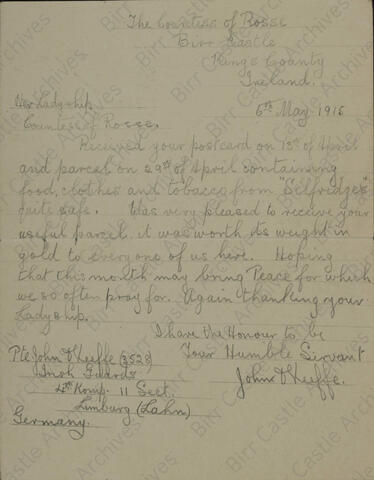 The Countess of Rosse
Birr Castle
Kings County
Ireland.
Her Ladyship
6th May 1916
Countess of Rosse.
Received your postcard on 13th of April
and parcel on 29th of April containing
food, clothes and tobacco from "Selfridges"
quite safe. Was very pleased to receive your
useful parcel it was worth its weight in
gold to everyone of us here. Hoping
that this month may bring Peace for which
we so often pray for. Again thanking your
Ladyship.
I have the Honour to be
Your Humble Servant
John O'Keeffe.
Pte John O'Keeffe (3528)
Irish Guards
4th Komp. 11 Sect.
Limburg (Lahn)
Germany.
Birr Castle Archives